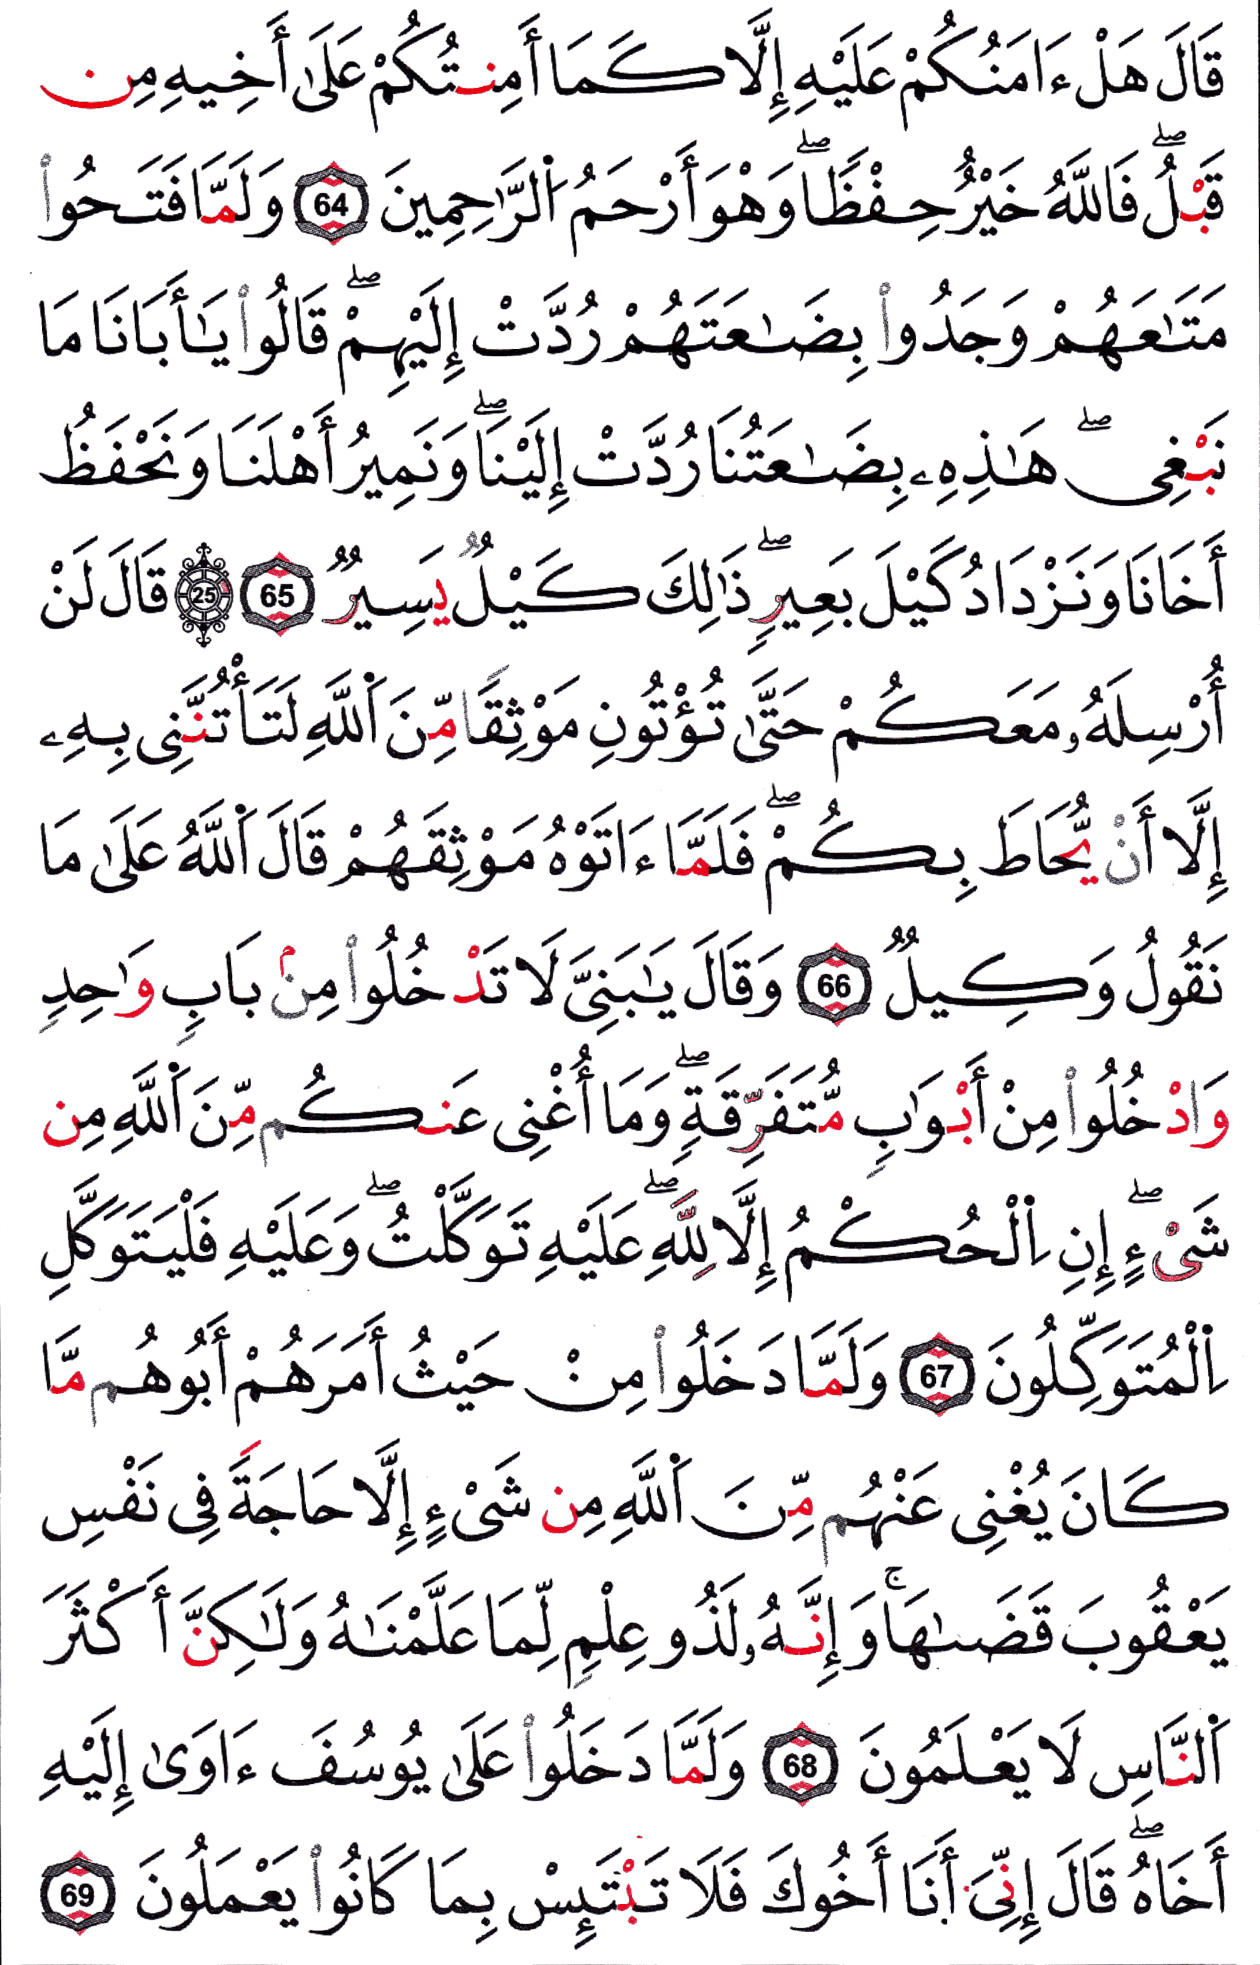 قَالَ هَلْ ءَامَنُكُمْ عَلَيْهِ إِلَّا كَمَا أَمِنتُكُمْ عَلَىٰ أَخِيهِ مِن
قَبْلُۖ فَاللَّهُ خَيْرٌ حِفْظًاۖ وَهْوَ أَرْحَمُ اَلرَّٰحِمِينَ 64 وَلَمَّا فَتَحُواْ
مَتَٰعَهُمْ وَجَدُواْ بِضَٰعَتَهُمْ رُدَّتْ إِلَيْهِمْۖ قَالُواْ يَٰأَبَانَا مَا
نَبْغِىۖ هَٰذِهِۦ بِضَٰعَتُنَا رُدَّتْ إِلَيْنَاۖ وَنَمِيرُ أَهْلَنَا وَنَحْفَظُ
أَخَانَا وَنَزْدَادُ كَيْلَ بَعِيرٍۖ ذَٰلِكَ كَيْلٌ يَسِيرٌ 65 25 قَالَ لَنْ
أُرْسِلَهُۥ مَعَكُمْ حَتَّىٰ تُؤْتُونِ مَوْثِقًا مِّنَ اَللَّهِ لَتَأْتُنَّنِى بِهِۦ
إِلَّا أَنْ يُّحَاطَ بِكُمْۖ فَلَمَّا ءَاتَوْهُ مَوْثِقَهُمْ قَالَ اَللَّهُ عَلَىٰ مَا
نَقُولُ وَكِيلٌ 66 وَقَالَ يَٰبَنِىَّ لَا تَدْخُلُواْ مِنۢ بَابٍ وَٰحِدٍ
وَادْخُلُواْ مِنْ أَبْوَٰبٍ مُّتَفَرِّقَةٍۖ وَمَا أُغْنِى عَنكُم مِّنَ اَللَّهِ مِن
شَىْءٍۖ إِنِ اِلْحُكْمُ إِلَّا لِلَّهِۖ عَلَيْهِ تَوَكَّلْتُۖ وَعَلَيْهِ فَلْيَتَوَكَّلِ
اِلْمُتَوَكِّلُونَ 67 وَلَمَّا دَخَلُواْ مِنْ حَيْثُ أَمَرَهُمْ أَبُوهُم مَّا
كَانَ يُغْنِى عَنْهُم مِّنَ اَللَّهِ مِن شَىْءٍ إِلَّا حَاجَةً فِى نَفْسِ
يَعْقُوبَ قَضَىٰهَاۚ وَإِنَّهُۥ لَذُو عِلْمٍ لِّمَا عَلَّمْنَٰهُ وَلَٰكِنَّ أَكْثَرَ
اَلنَّاسِ لَا يَعْلَمُونَ 68 وَلَمَّا دَخَلُواْ عَلَىٰ يُوسُفَ ءَاوَىٰ إِلَيْهِ
أَخَاهُۖ قَالَ إِنِّىَ أَنَا أَخُوكَ فَلَا تَبْتَئِسْ بِمَا كَانُواْ يَعْمَلُونَ 69